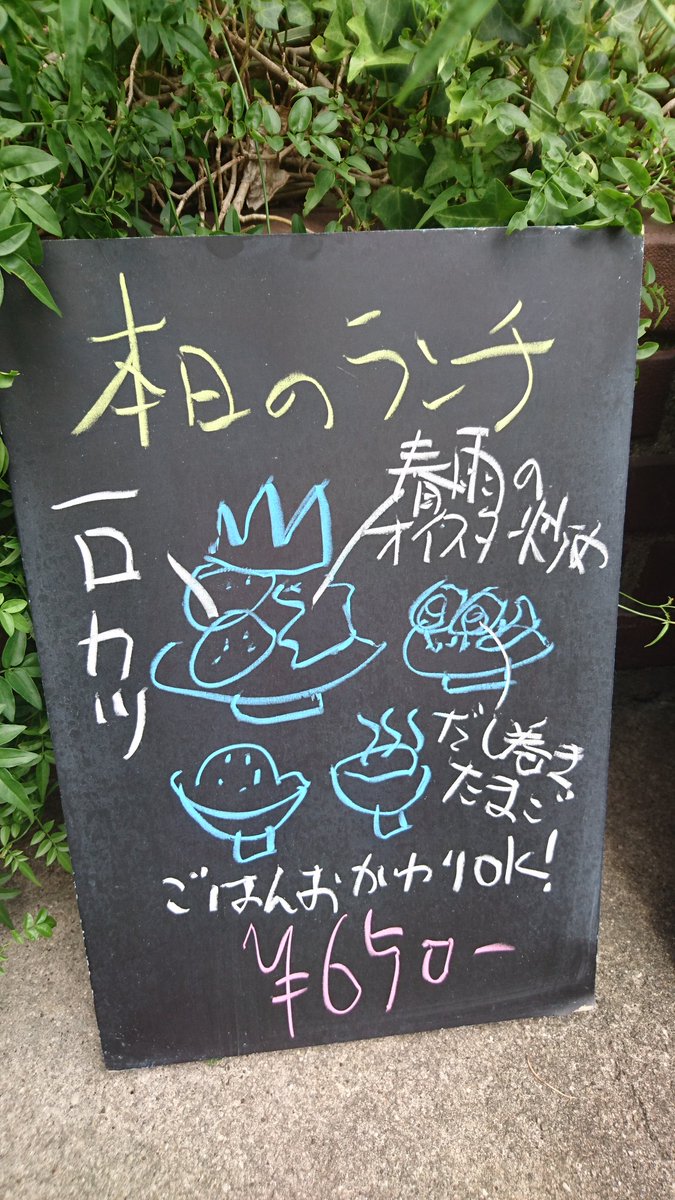 本日のランチ
一口カツ
春雨の
オイスター炒め
だし巻き
たまご
ごはんおかわりOK!
¥650-